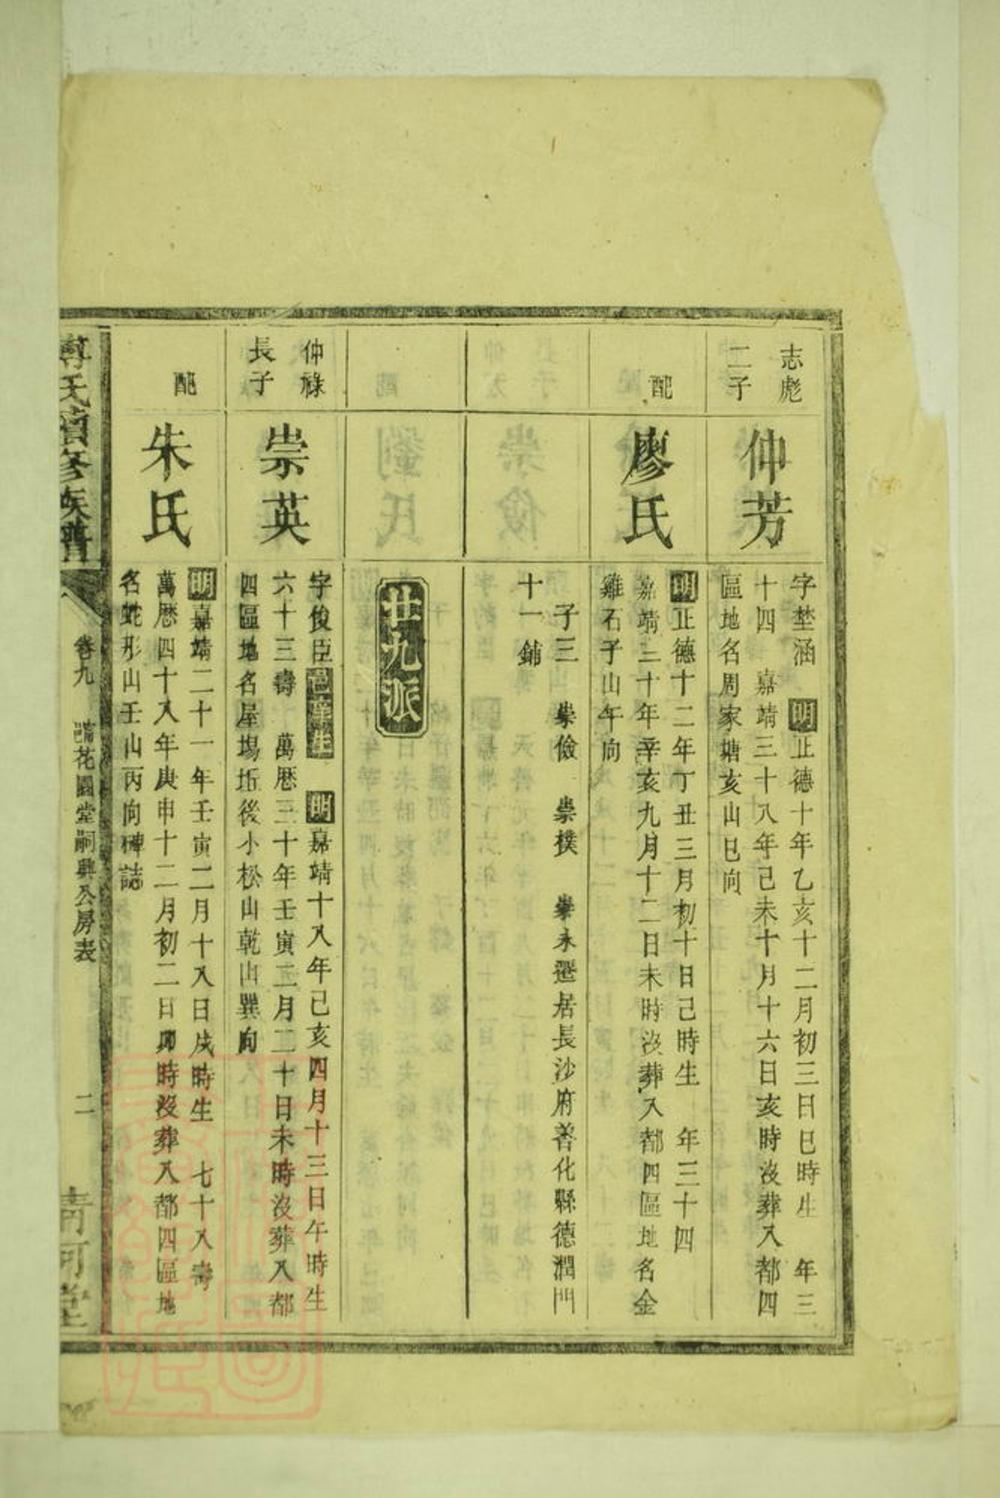 志彪
二子
仲芳
字埜涵　明正德十年乙亥十二月初三日巳時生　年三
十四　嘉靖三十八年己未十月十六日亥時沒葬入都四
區地名周家塘亥山巳向
配
廖氏
明正德十二年丁丑三月初十日己時生　年三十四
嘉靖三十年辛亥九月十二日未時沒葬入都四區地名金
雞石子山午向
子三　崇儉　崇樸　崇永遷居長沙府善化縣德潤門
十一鋪
廿九派
仲祿
長子
崇英
字俊臣邑庠生　明嘉靖十八年己亥四月十三日午時生
六十三壽　萬厯三十年壬寅二月二十日未時沒葬入都
四區地名屋塲坵後小松山乾山巽向
配
朱氏
明嘉靖二十一年壬寅二月十八日戌時生　七十八壽
萬厯四十八年庚申十二月初二日卯時沒葬入都四區地
名蛇形山壬山丙向碑誌
傅氏續修族譜
卷九
花園堂嗣興公房表
二
清河堂